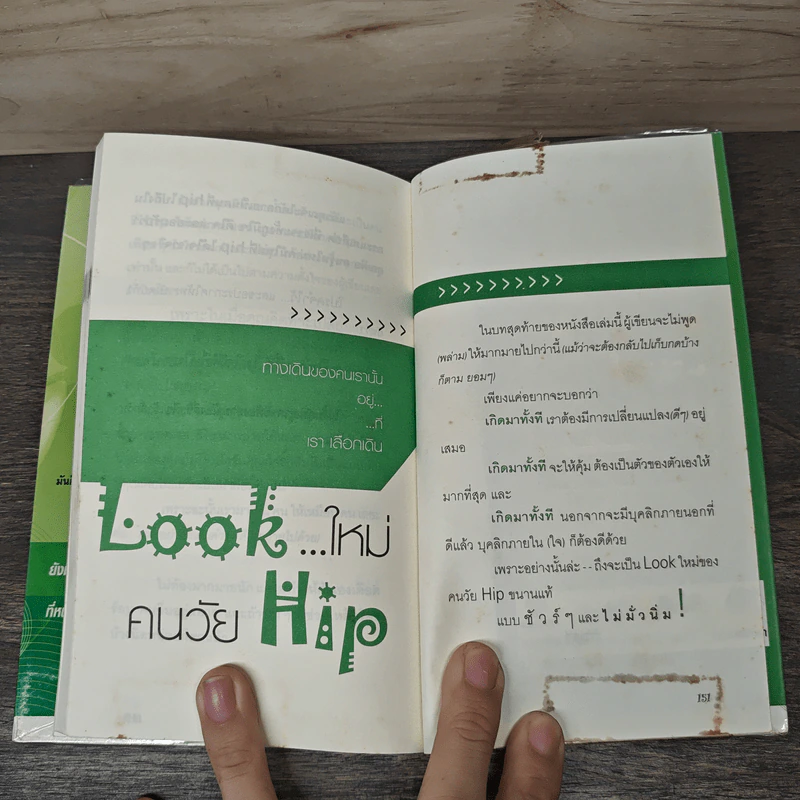 >>>>>>>>>>
ทางเดินของคนเรานั้น
อยู่...
...ที่
เรา เลือกเดิน
Look ...ใหม่
คนวัย Hip
>>>>>>>>>>
ในบทสุดท้ายของหนังสือเล่มนี้ ผู้เขียนจะไม่พูด
(พล่าม) ให้มากมายไปกว่านี้ (แม้ว่าจะต้องกลับไปเก็บกดบ้าง
ก็ตาม ยอมๆ)
เพียงแค่อยากจะบอกว่า
เกิดมาทั้งที เราต้องมีการเปลี่ยนแปลง(ดีๆ) อยู่
เสมอ
เกิดมาทั้งที จะให้คุ้ม ต้องเป็นตัวของตัวเองให้
มากที่สุด และ
เกิดมาทั้งที นอกจากจะมีบุคลิกภายนอกที่
ดีแล้ว บุคลิกภายใน (ใจ) ก็ต้องดีด้วย
เพราะอย่างนั้นล่ะ -- ถึงจะเป็น Look ใหม่ของ
คนวัย Hip ขนานแท้
แบบ ชัวร์ๆ และ ไม่มั่วนิ่ม !
151